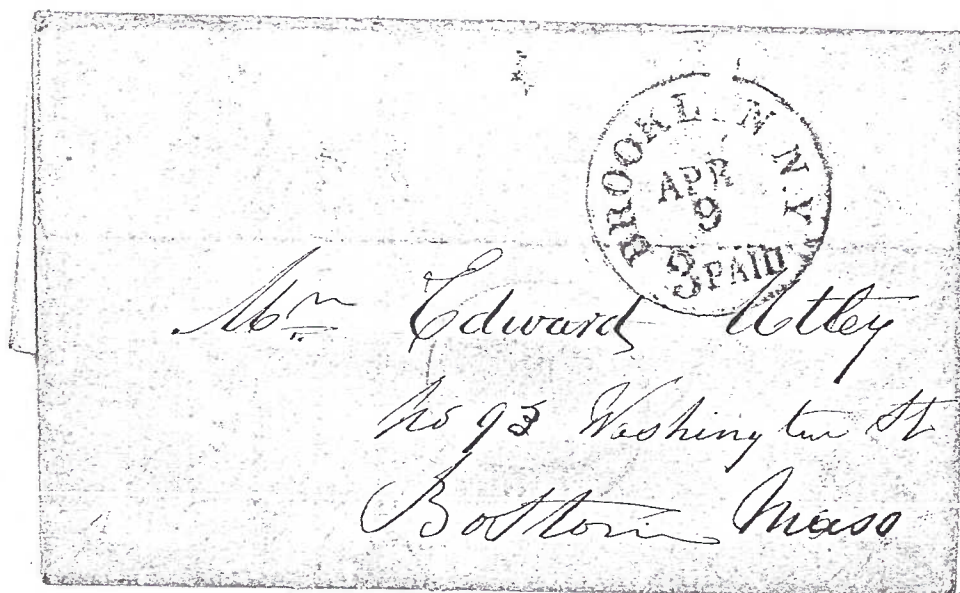 BROOKLYN N.Y.
APR
9
3 PAID
Mr Edward Utley
No 93 Washington St
Boston Mass